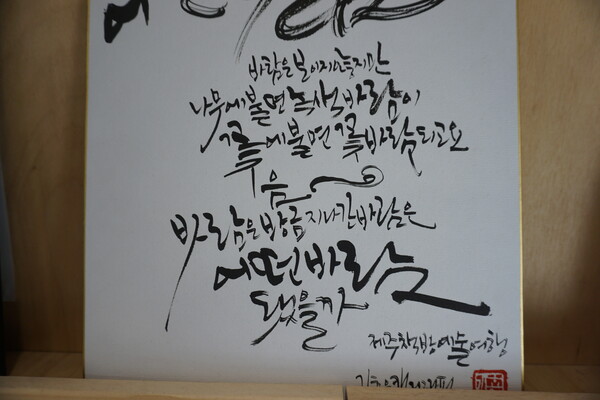 바람은 보이지 않지만
나무에 불면 녹색 바람이
꽃에 불면 꽃바람 되고요
음
바람은 방금 지나간 바람은
어떤 바람
됐을까
제주책방예술여행